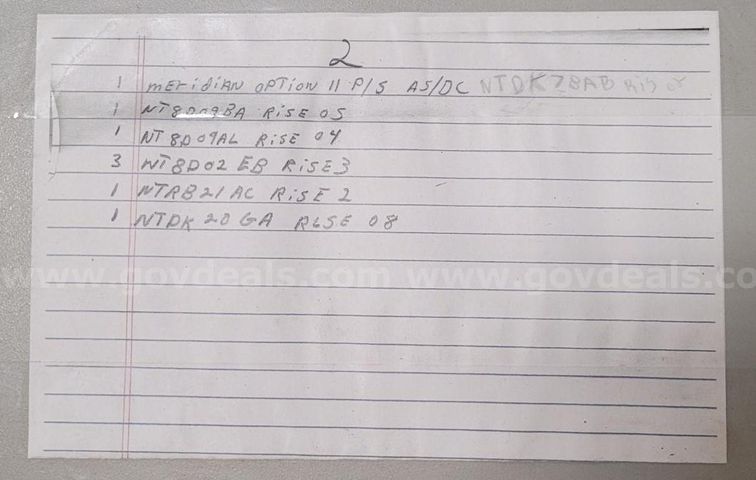 2
1 MERidiAN OPTION 11 P/S AS/DC NTDK78AB Ris
1 NT8D09BA RiSE 05
1 NT8D09AL RiSE 04
3 NT8D02 EB RiSE 3
1 NTRB21 AC RiSE 2
1 NTDK 20 GA RLSE 08
www.govdeals.com www.govdeals.co